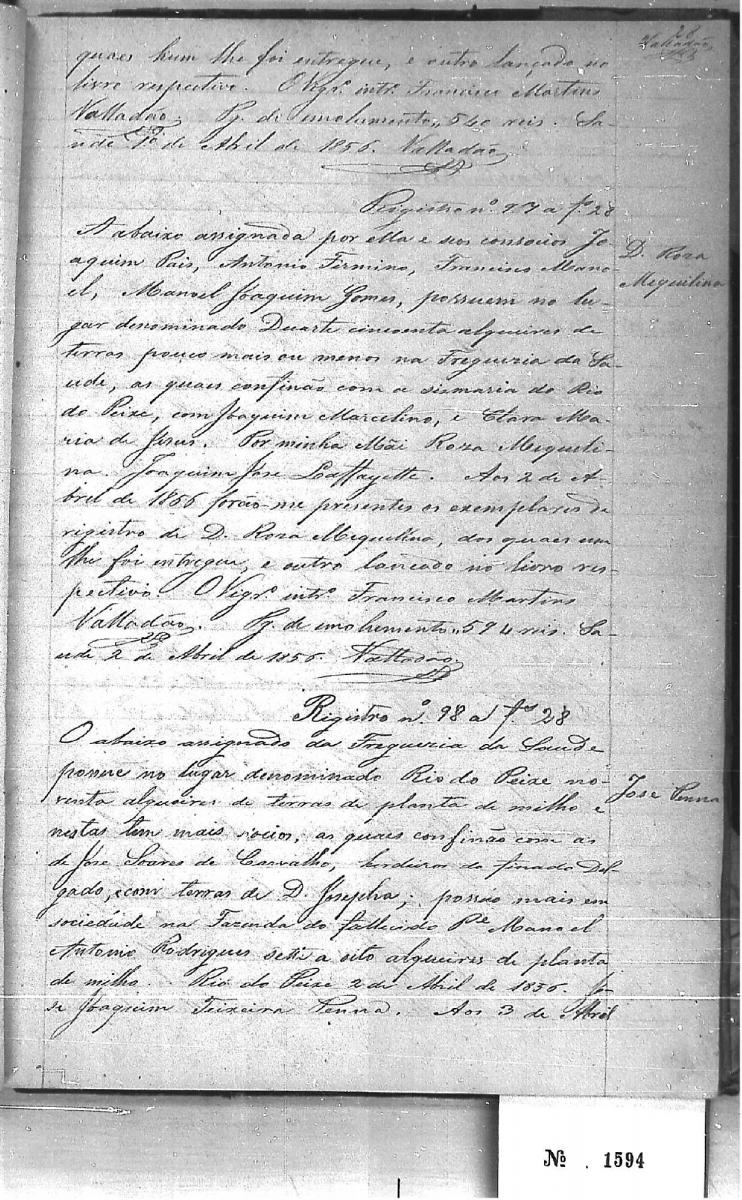 28
Valladão
quaes hum lhe foi entregue, e outro lançado no
livro respectivo. O Vigrº. intrº. Francisco Martins
Valladão. Pg. de emolumento 540 reis. Sa-
ude 1º de Abril de 1856. Valladão
Registro nº. 97 a fˢ 28
D. Roza
Miquilina
A abaixo assignada por ella e seos consocios Jo-
aquim Pais, Antonio Firmino, Francisco Mano-
el, Manoel Joaquim Gomes, possuem no lu-
gar denominado Duarte cincoenta alqueires de
terras pouco mais ou menos na Freguezia da Sa-
ude, as quaes confinão com a sismaria do Rio
do Peixe, com Joaquim Marcelino, e Clara Ma-
ria de Jesus. Por minha Mãi Roza Miquili-
na. Joaquim Jose Laffayette. Aos 2 de A-
bril de 1856 forão-me presentes os exemplares de
registro de D. Roza Miquilina, dos quaes um
lhe foi entregue, e outro lancado no livro res-
pectivo. O Vigrº. intrº. Francisco Martins
Valladão. Pg. de emolumento 594 reis. Sa-
ude 2 de Abril de 1856. Valladão
Registro nº. 98 a fˢ 28
José Penna
O abaixo assignado da Freguezia da Saude
possue no lugar denominado Rio do Peixe no-
venta alqueires de terras de planta de milho e
nestas tem mais socios, as quaes confinão com as
de José Soares de Carvalho, herdeiros do finado Del-
gado, e com terras de D. Josepha; possue mais em
sociedade na Fazenda do fallecido Pᵉ Manoel
Antonio Rodrigues sette a oito alqueires de planta
de milho. Rio do Peixe 2 de Abril de 1856. Jo-
se Joaquim Teixeira Penna. Aos 3 de Abril
Nº 1594